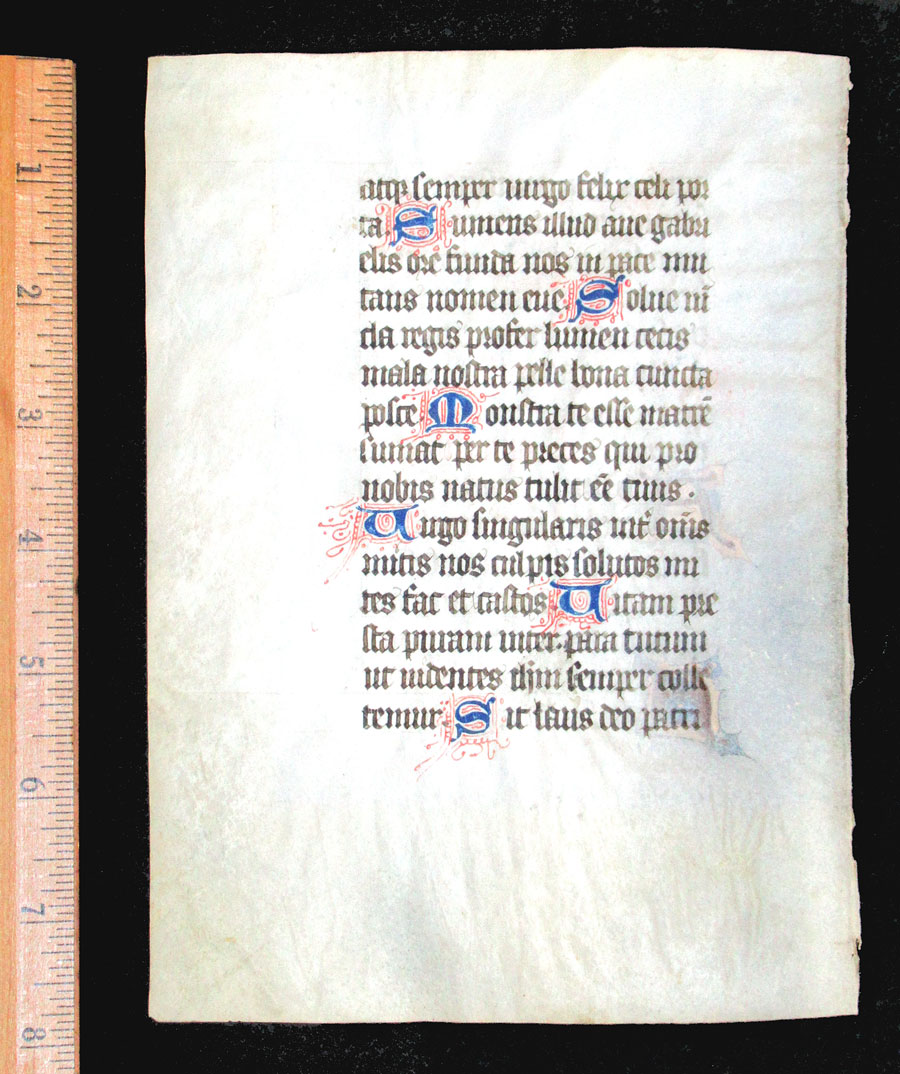 atq; semper uirgo felix celi por
ta. Sumens illud aue gabri
elis ore funda nos in pace mu
tans nomen eue. Solue uī
cla regis profer lumen cecis
mala nostra pelle bona cuncta
posce Monstra te esse matrē
sumat per te preces qui pro
nobis natus tulit eē tuus .
Uirgo singularis int̄ om̄s
mitis nos culpis solutos mi
tes fac et castos Uitam pre
sta puram inter para tutum
ut uidentes ihm semper colle
temur. Sit laus deo patri
1
2
3
4
5
6
7
8